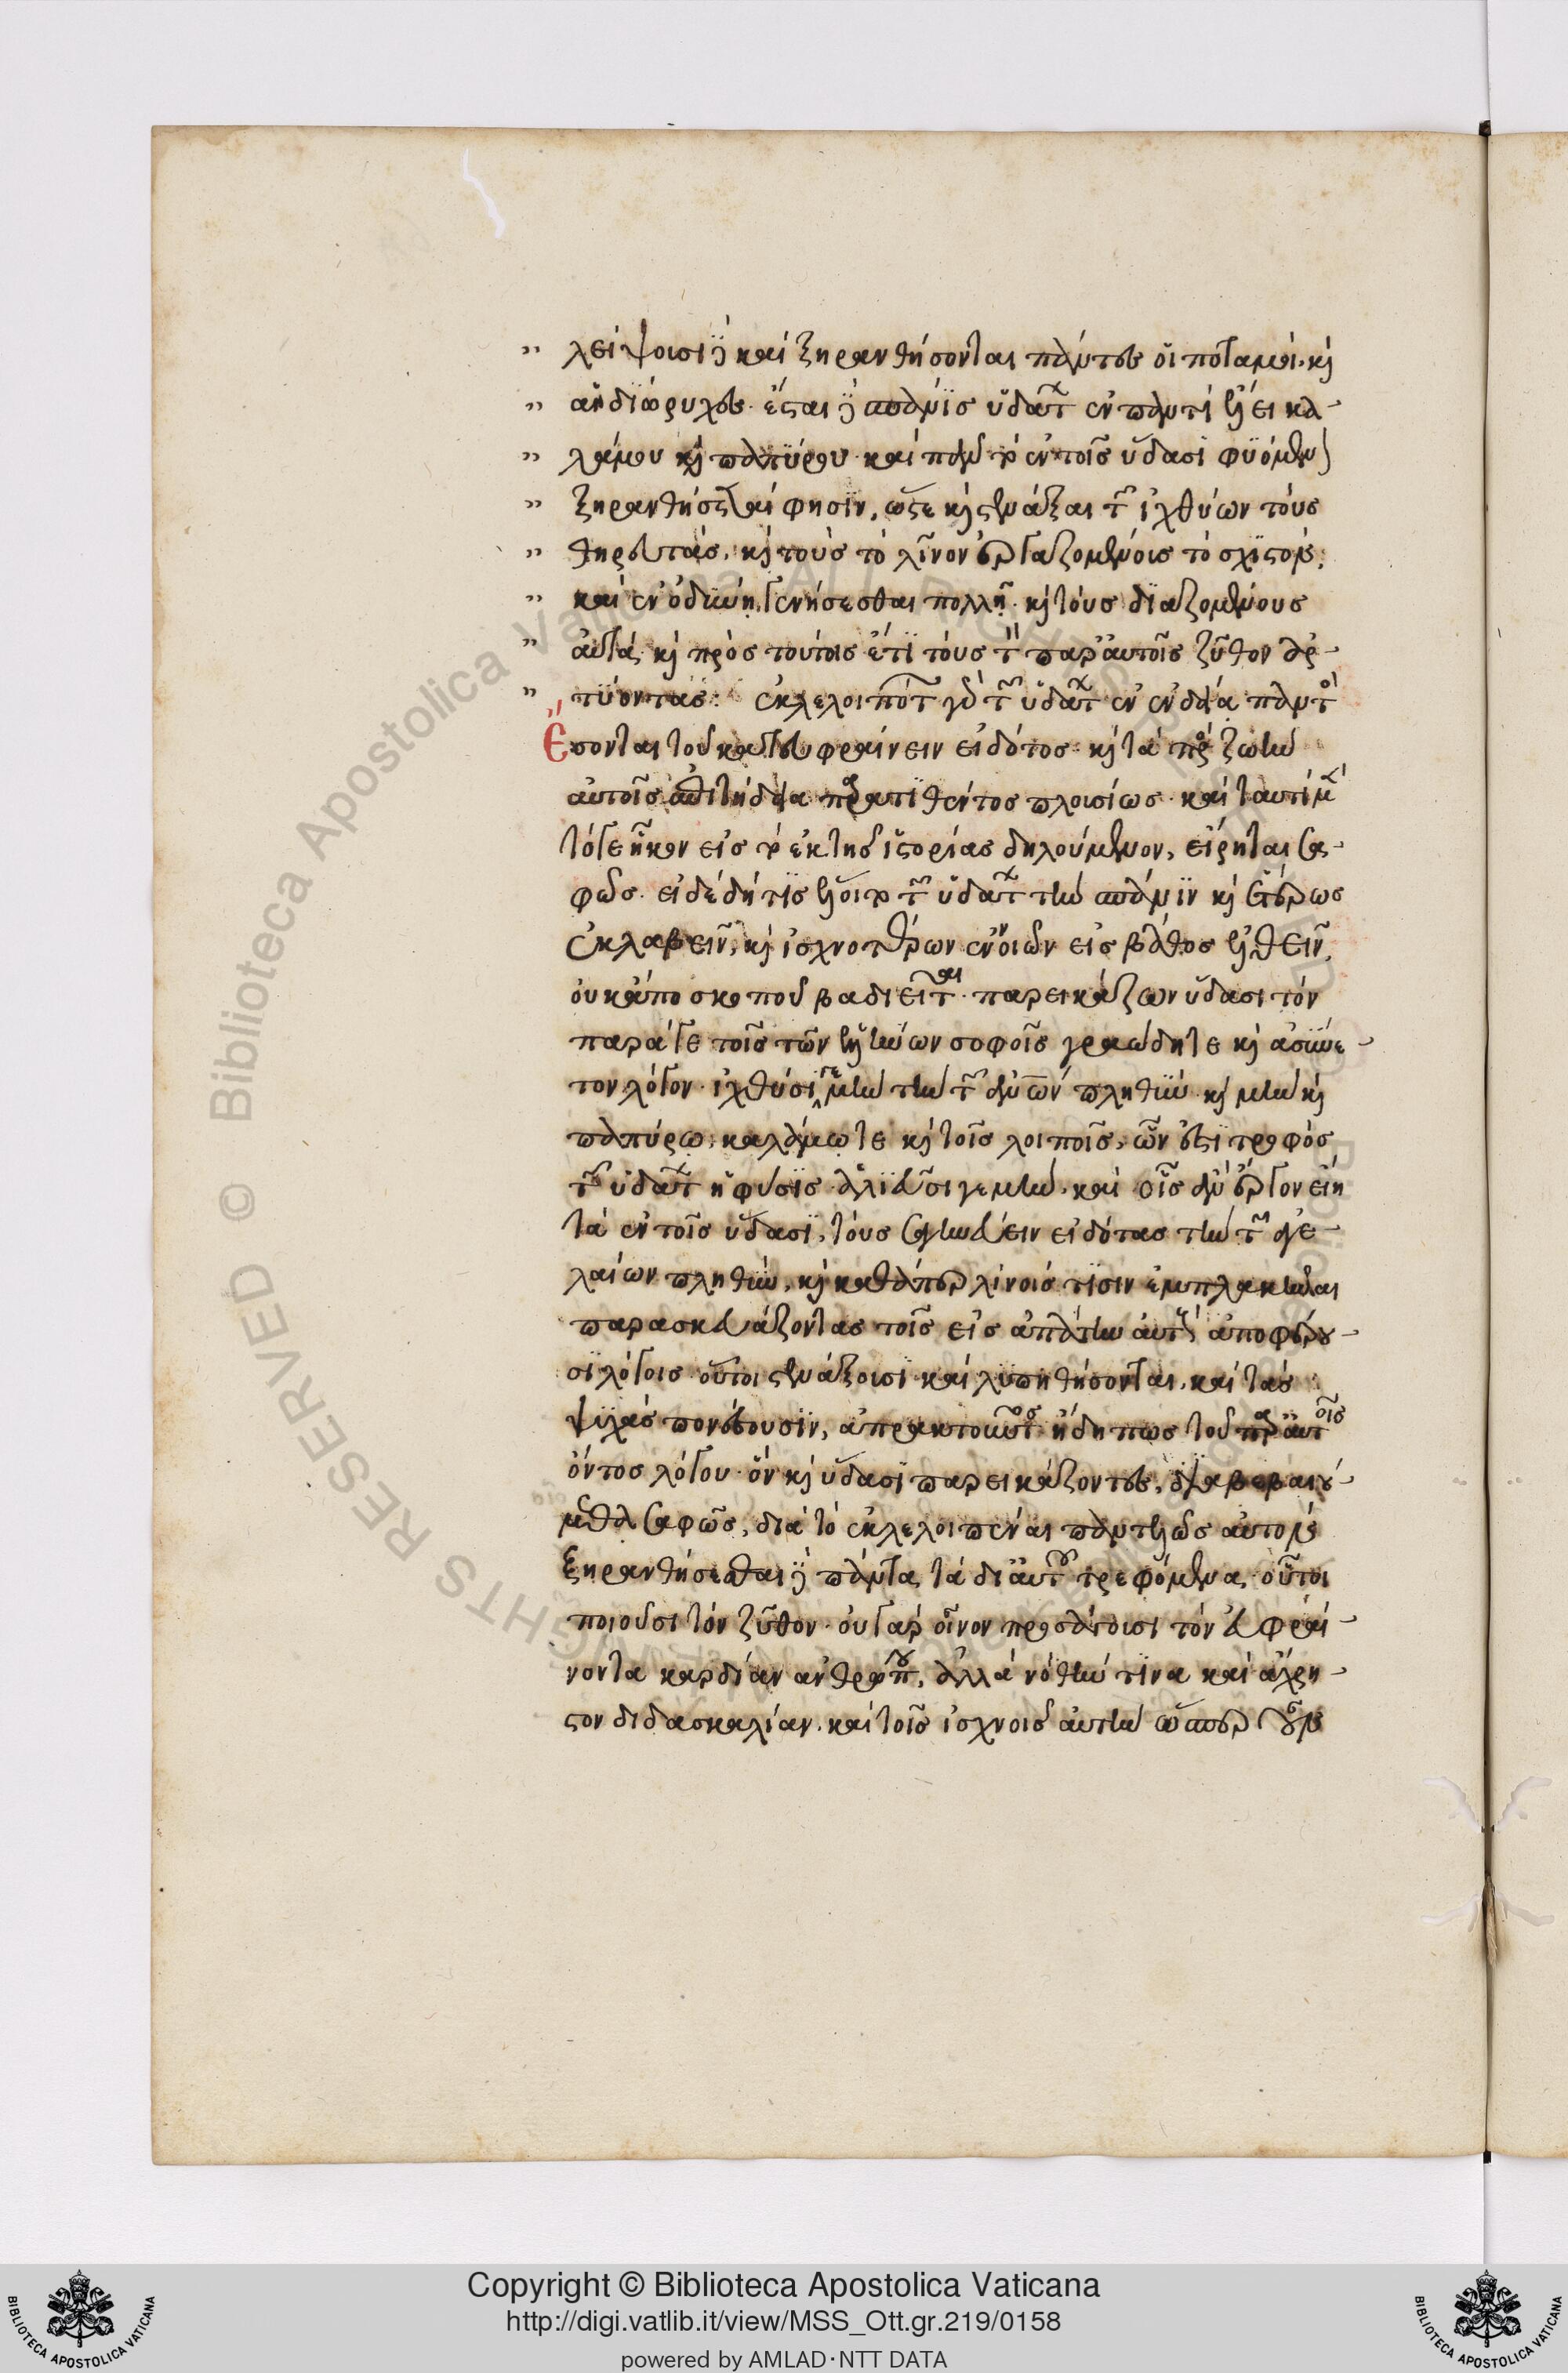 λείψουσι δὲ καὶ ξηρανθήσονται πάντες οἱ ποταμοὶ. καὶ
αἱ διώρυχες. ἔσται δὲ ἀπάμϊς ὑδάτων ἐν παντὶ ἕλει κα-
λάμου καὶ παπύρου. καὶ πᾶν τὸ ἐν τοῖς ὕδασι φυόμενον
ξηρανθήσεσθαί φησϊν, ὥστε καὶ στενάξαι τῶν ἰχθύων τοὺς
θηρευτὰς, καὶ τοὺς τὸ λῖνον ἐργαζομένοις τὸ σχϊστὸν.
καὶ ἐν ὀδύνῃ γενήσεσθαι πολλῇ. καὶ τοὺς διαζομένους
αὐτὰ, καὶ πρὸς τούτοις ἔτϊ τοὺς τὸν παρ' αὐτοῖς ζῦθον ἀρ-
τύοντας. ἐκλελοιπότων γὰρ τῶν ὑδάτων ἐν ἐνδείᾳ παντὸς
Ἔσονται τοῦ κατευφραίνειν εἰδότος. καὶ τὰ πρὸς ζωὴν
αὐτοῖς ἐπιτήδεια προσαντιθέντος πλουσίως. καὶ ταυτὶ μὲν
τό γε ἧκον εἰς τὸ ἐκ τῆς ἱστορίας δηλούμενον, εἴρηται σα-
φῶς. εἰ δὲ δή τϊς ἕλοιτο τῶν ὑδάτων τὴν ἀπάμϊν καὶ ἑτέρως
ἐκλαβεῖν, καὶ ἰσχνοτέρων ἐννοιῶν εἰς βάθος ἐλθεῖν,
οὐκ ἀπὸ σκοποῦ βαδιεῖται. παρεικάζων ὕδασι τὸν
παρά γε τοῖς τῶν ἑλλήνων σοφοῖς γραώδη τε καὶ ἀσύνε-
τον λόγον. ἰχθύσι γε μὴν τὴν τῶν ἀνῶν πληθὺν. καὶ μὴν καὶ
παπύρῳ. καλάμῳ τε καὶ τοῖς λοιποῖς, ὧν ἐστϊ τροφὸς
τῶν ὑδάτων ἡ φύσϊς. ἁλϊεῦσί γε μὴν. καὶ οἷς ἂν ἔργον εἴη
τὰ ἐν τοῖς ὕδασϊ, τοὺς σαγηνεύειν εἰδότας τὴν τῶν ἀγε-
λαίων πληθὺν, καὶ καθάπερ λίνοις τϊσιν ἐμπλακῆναι
παρασκευάζοντας τοῖς εἰς ἀπάτην αὐτῶν ἀποφέρου-
σϊ λόγοις. οὗτοι στενάξουσι καὶ λυπηθήσονται. καὶ τὰς
ψυχὰς πονέσουσϊν, ἀπρακτοῦντος ἤδη πως τοῦ παρ' αὐτοῖς
ὄντος λόγου. ὃν καὶ ὕδασϊ παρεικάζοντες, διαβεβαιού-
μεθα σαφῶς, διὰ τὸ ἐκλελοιπέναι παντελῶς αὐτὸν
ξηρανθήσεσθαι δὲ πάντα τὰ δι' αὐτοῦ τρεφόμενα. οὗτοι
ποιοῦσι τὸν ζῦθον. οὐ γὰρ οἶνον προσάγουσι τὸν εὐφραί-
νοντα καρδίαν ἀνθρώπου, ἀλλὰ νόθην τϊνα καὶ ἄχρη-
στον διδασκαλίαν. καὶ τοῖς ἰσχνοῖς αὐτὴν ὥσπερ
Copyright © Biblioteca Apostolica Vaticana
http://digi.vatlib.it/view/MSS_Ott.gr.219/0158
powered by AMLAD·NTT DATA